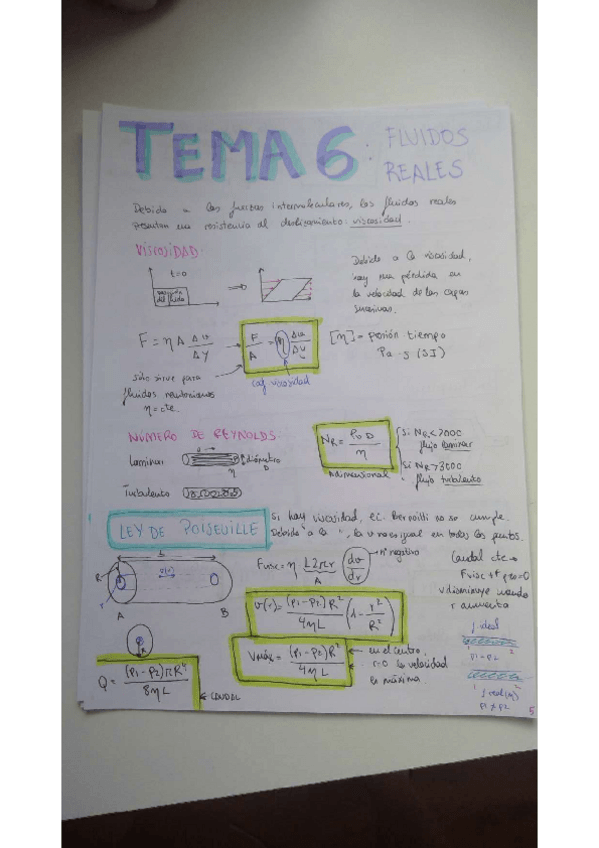 TEMA 6: FLUIDOS REALES
Debido a las fuerzas intermoleculares, los fluidos reales
presentan una resistencia al deslizamiento: viscosidad.
VISCOSIDAD:
t=0
sección del fluido
Debido a la viscosidad,
hay una pérdida en
la velocidad de las capas
sucesivas.
F = η A Δv/Δy
F/A = η Δv/Δy
[η] = presión tiempo
Pa·s (SI)
Sólo sirve para
fluidos newtonianos
η = cte.
coef viscosidad
NÚMERO DE REYNOLDS:
Laminar
diámetro D
η
Turbulento
N_R = ρ v D / η
Adimensional
Si N_R < 2000
flujo laminar
Si N_R > 3000
flujo turbulento
LEY DE POISEUILLE
Si hay viscosidad, ec. Bernoilli no se cumple.
Debido a la ", la v no es igual en todos los puntos.
L
R
r
v(r)
A
B
Fvisc = η L2πr (dv/dr)
A
nº negativo
Caudal cte →
Fvisc + F pre = 0
v disminuye cuando
r aumenta
v(r) = (p1-p2)R²/4ηL (1 - r²/R²)
Vmáx = (p1-p2)R²/4ηL
en el centro,
r=0 la velocidad
es máxima
Q = (p1-p2)πR⁴/8ηL
CAUDAL
f. ideal
p1 = p2
f. real (η)
p1 ≠ p2
5